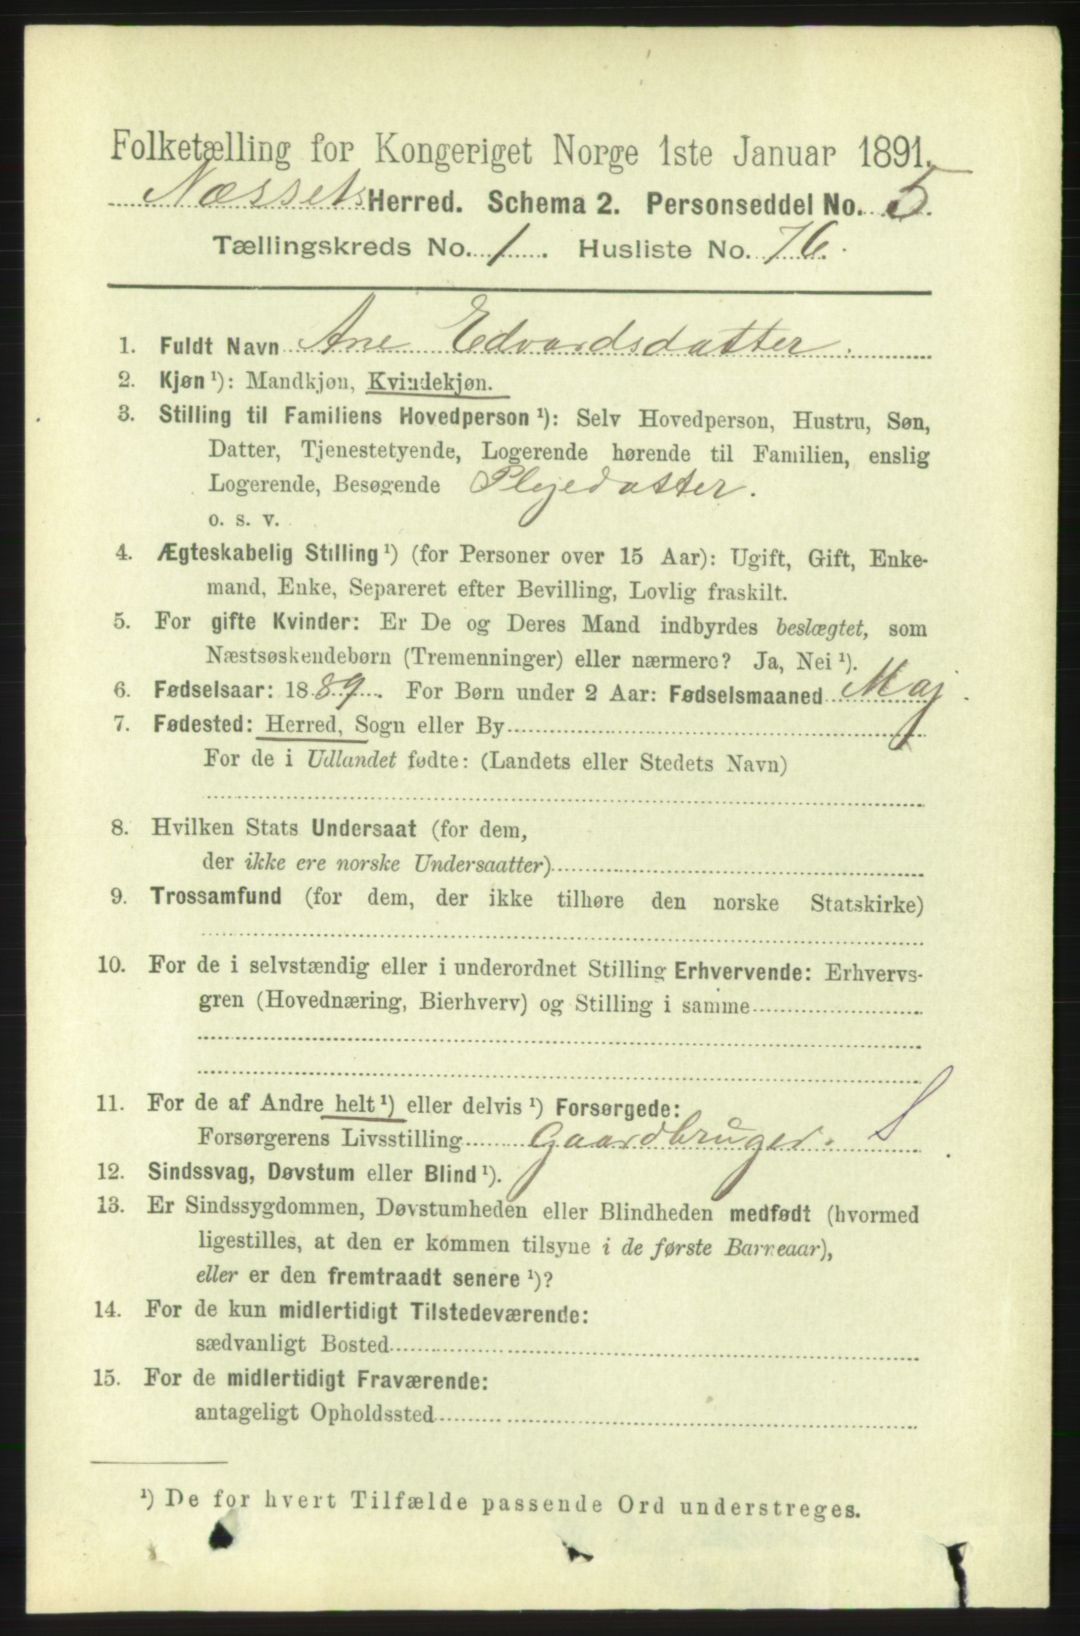 Folketælling for Kongeriget Norge 1ste Januar 1891.
Næssets Herred. Schema 2. Personseddel No. 5.
Tællingskreds No. 1. Husliste No. 76.
1. Fuldt Navn Ane Edvardsdatter.
2. Kjøn ¹): Mandkjøn, Kvindekjøn.
3. Stilling til Familiens Hovedperson ¹): Selv Hovedperson, Hustru, Søn,
Datter, Tjenestetyende, Logerende hørende til Familien, enslig
Logerende, Besøgende Plejedatter.
o. s. v.
4. Ægteskabelig Stilling ¹) (for Personer over 15 Aar): Ugift, Gift, Enke-
mand, Enke, Separeret efter Bevilling, Lovlig fraskilt.
5. For gifte Kvinder: Er De og Deres Mand indbyrdes beslægtet, som
Næstsøskendebørn (Tremenninger) eller nærmere? Ja, Nei ¹).
6. Fødselsaar: 1889. For Børn under 2 Aar: Fødselsmaaned Maj.
7. Fødested: Herred, Sogn eller By
For de i Udlandet fødte: (Landets eller Stedets Navn)
8. Hvilken Stats Undersaat (for dem,
der ikke ere norske Undersaatter)
9. Trossamfund (for dem, der ikke tilhøre den norske Statskirke)
10. For de i selvstændig eller i underordnet Stilling Erhvervende: Erhvervs-
gren (Hovednæring, Bierhverv) og Stilling i samme
11. For de af Andre helt ¹) eller delvis ¹) Forsørgede:
Forsørgerens Livsstilling Gaardbruger. S
12. Sindssvag, Døvstum eller Blind ¹).
13. Er Sindssygdommen, Døvstumheden eller Blindheden medfødt (hvormed
ligestilles, at den er kommen tilsyne i de første Barneaar),
eller er den fremtraadt senere ¹)?
14. For de kun midlertidigt Tilstedeværende:
sædvanligt Bosted
15. For de midlertidigt Fraværende:
antageligt Opholdssted
¹) De for hvert Tilfælde passende Ord understreges.